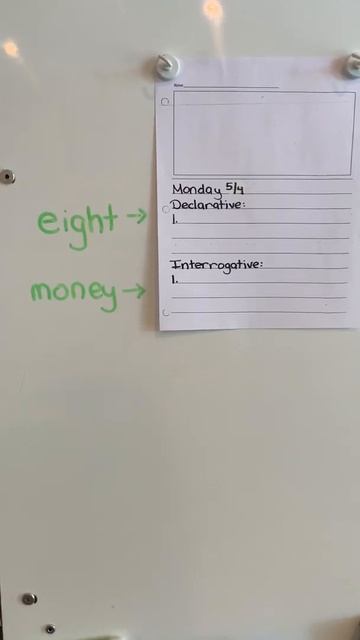 Name
Monday 5/4
Declarative:
eight →
1.
Interrogative:
money →
1.